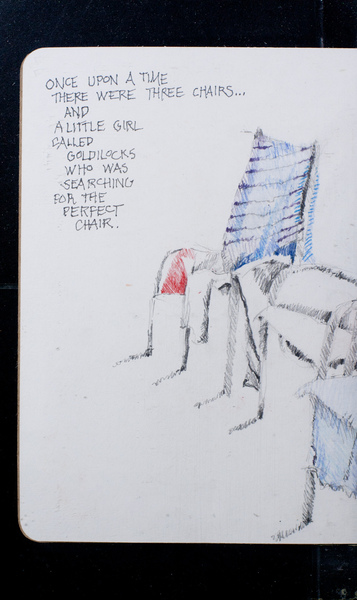 ONCE UPON A TIME
THERE WERE THREE CHAIRS...
AND
A LITTLE GIRL
CALLED
GOLDILOCKS
WHO WAS
SEARCHING
FOR THE
PERFECT
CHAIR..